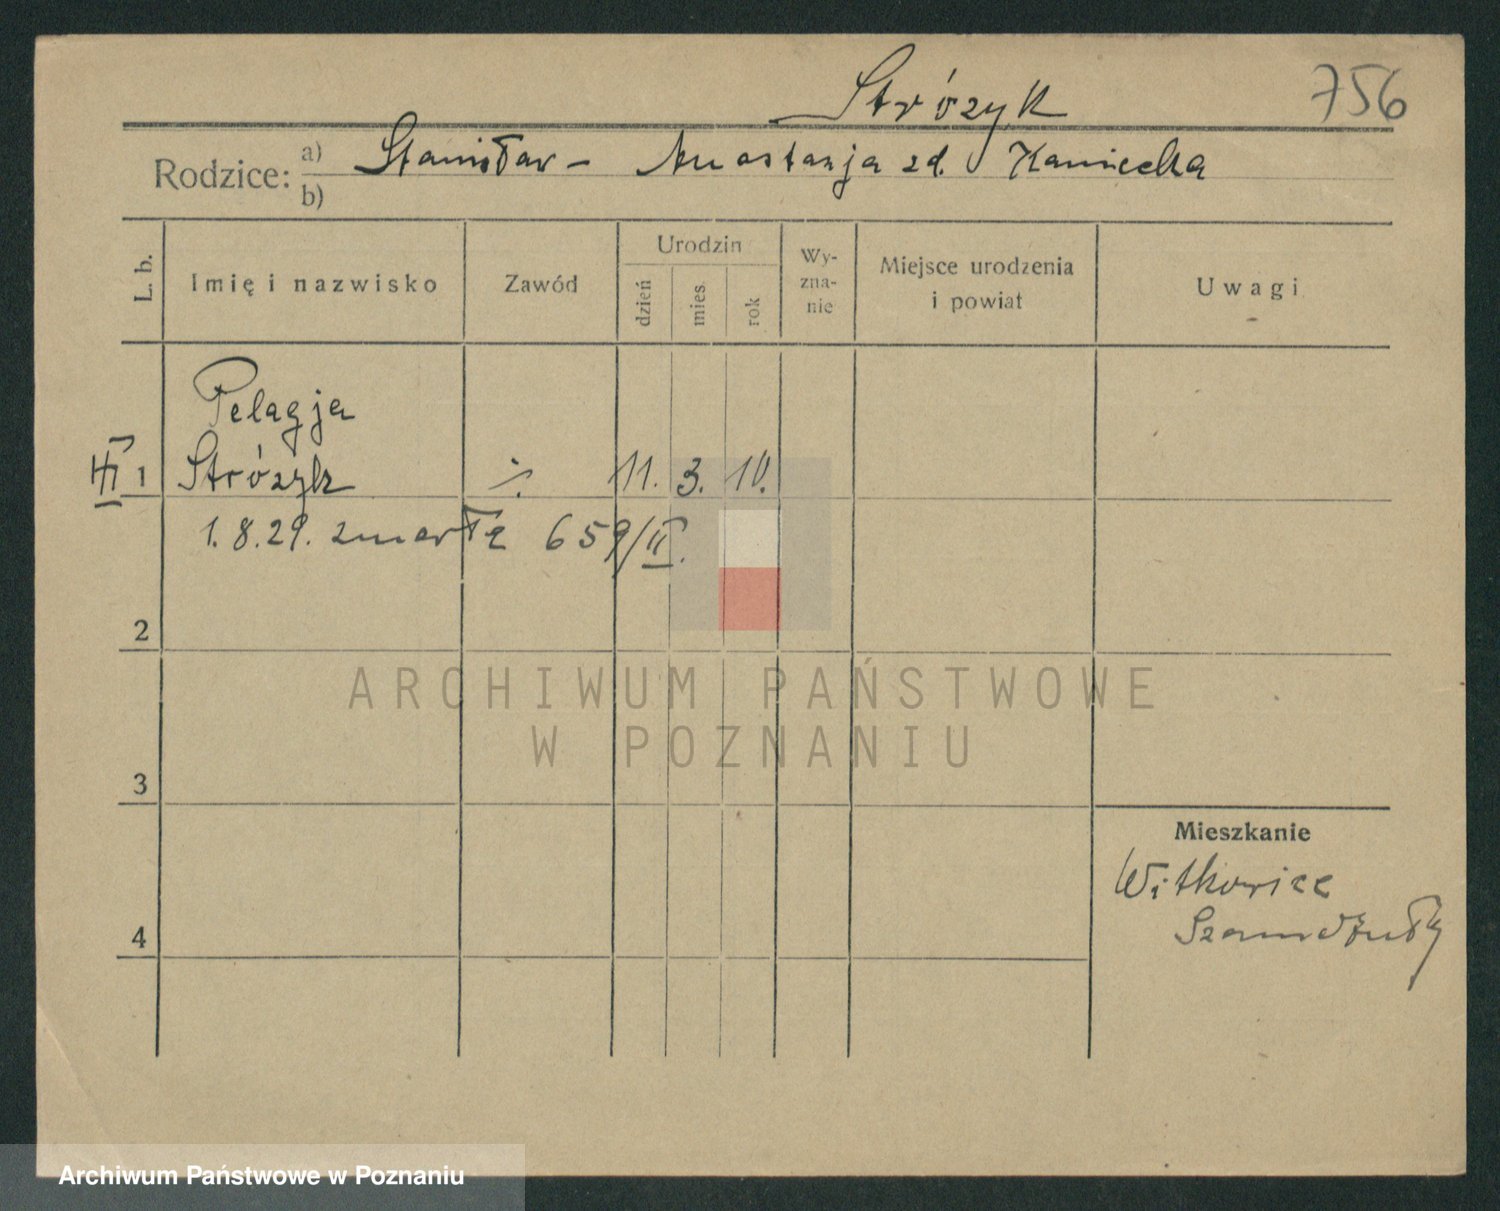 Stróżyk
756
Rodzice: a) Stanisław – Anastazja zd. Kaniecka
b)
L. b.
Imię i nazwisko
Zawód
Urodzin
dzień
mies.
rok
Wy-
zna-
nie
Miejsce urodzenia
i powiat
Uwagi
Pelagja
1 Stróżyk ./. 11. 3. 10.
1.8.29. zmarła 659/II.
2
ARCHIWUM PAŃSTWOWE
W POZNANIU
3
Mieszkanie
Witkowice
Szamotuły
4
Archiwum Państwowe w Poznaniu